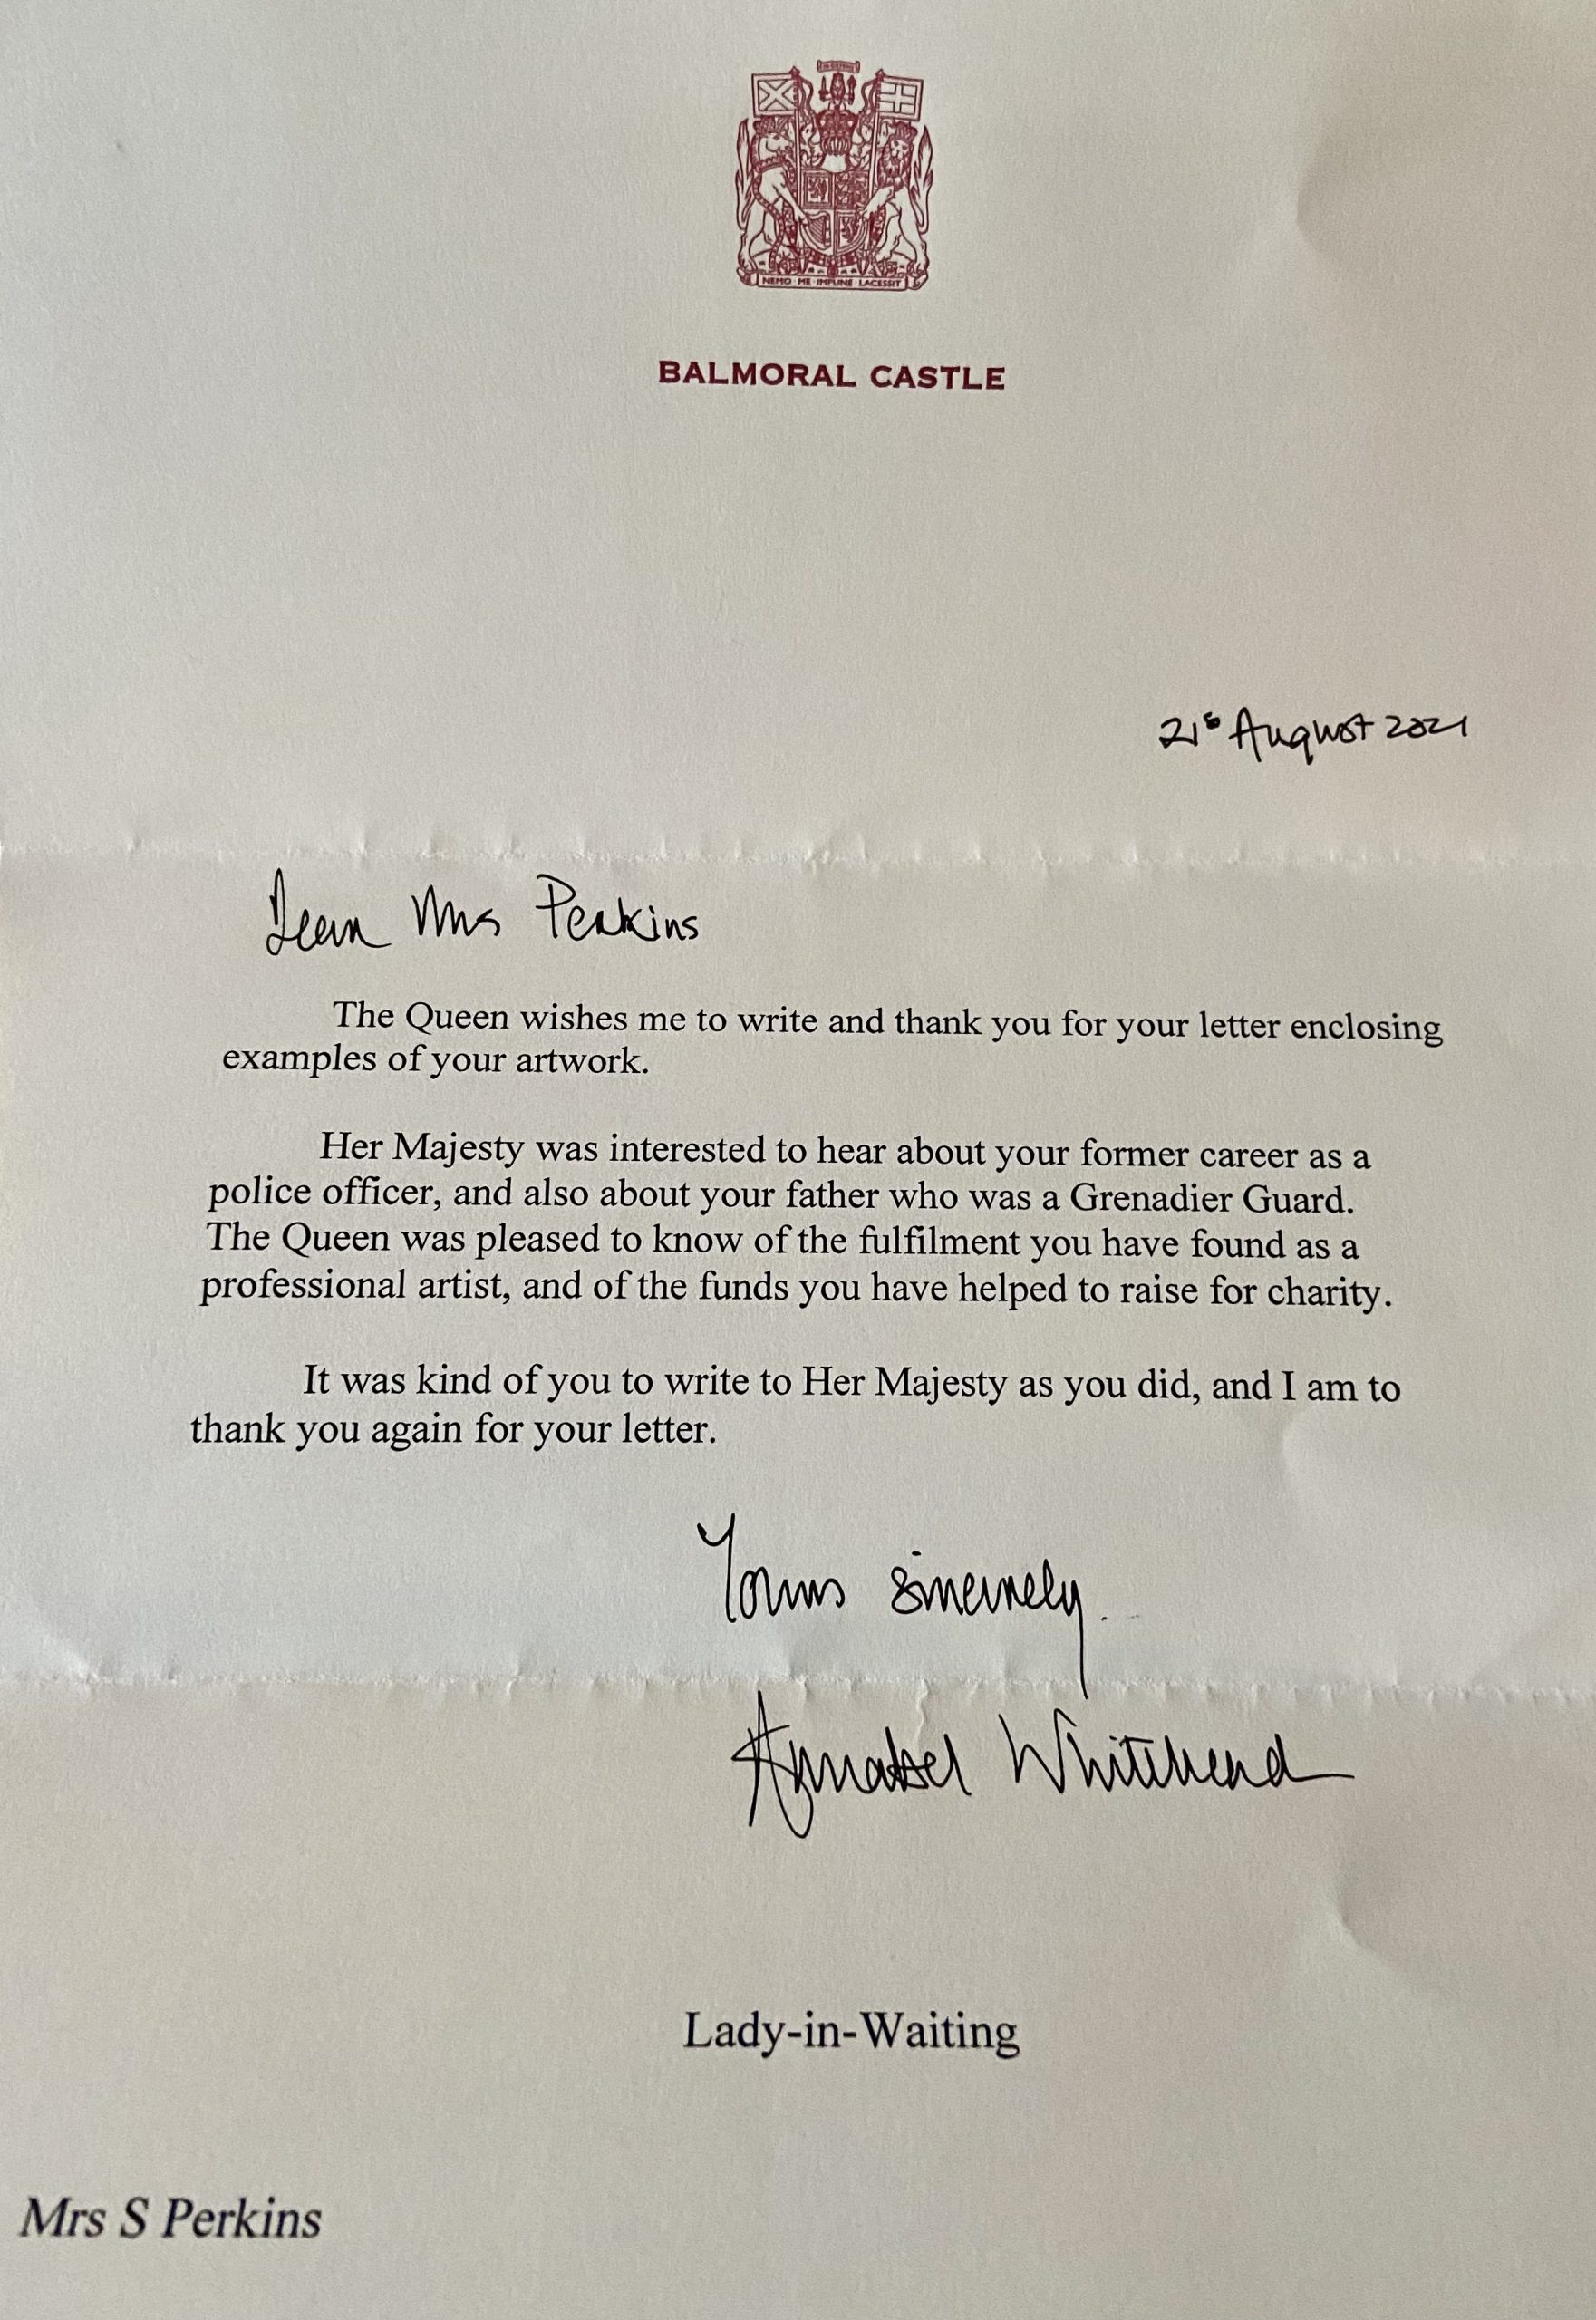 IN DEFENS
NEMO ME IMPUNE LACESSIT
BALMORAL CASTLE
21s August 2021
Dear Mrs Perkins
The Queen wishes me to write and thank you for your letter enclosing
examples of your artwork.
Her Majesty was interested to hear about your former career as a
police officer, and also about your father who was a Grenadier Guard.
The Queen was pleased to know of the fulfilment you have found as a
professional artist, and of the funds you have helped to raise for charity.
It was kind of you to write to Her Majesty as you did, and I am to
thank you again for your letter.
Yours sincerely.
Annabel Whitehead
Lady-in-Waiting
Mrs S Perkins